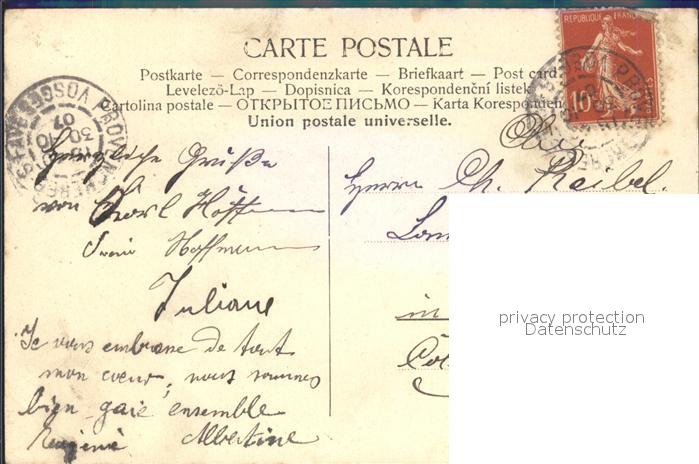 CARTE POSTALE
Postkarte — Correspondenzkarte — Briefkaart — Post card
Levelező-Lap — Dopisnica — Korespondenční listek
Cartolina postale — ОТКРЫТОЕ ПИСЬМО — Karta Koresponden
Union postale universelle.
REPUBLIQUE FRANC
10
VOSGES
PROVEN
30
07
Herzliche Grüße
von Karl Hoffmann
Hoffmann
Juliane
Je vous embrasse de tout
mon coeur, nous sommes
bien gaie ensemble
Eugénie Albertine
Herrn Ch. Reibel.
in
privacy protection
Datenschutz